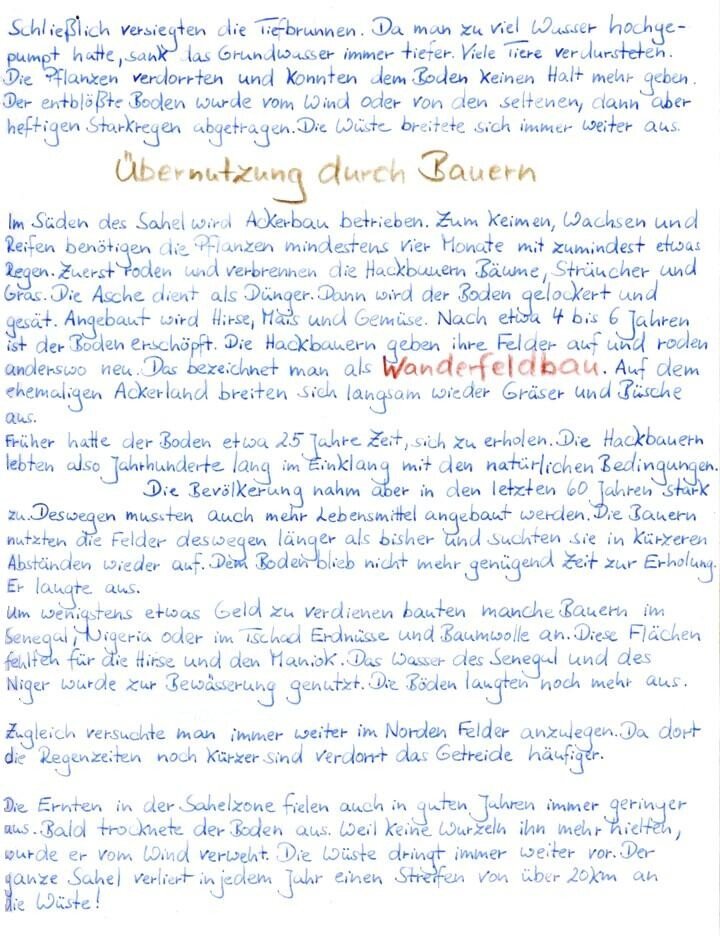 Schließlich versiegten die Tiefbrunnen. Da man zu viel Wasser hochge-
pumpt hatte, sank das Grundwasser immer tiefer. Viele Tiere verdursteten.
Die Pflanzen verdorrten und konnten dem Boden keinen Halt mehr geben.
Der entblößte Boden wurde vom Wind oder von den seltenen, dann aber
heftigen Starkregen abgetragen. Die Wüste breitete sich immer weiter aus.
Übernutzung durch Bauern
Im Süden des Sahel wird Ackerbau betrieben. Zum Keimen, Wachsen und
Reifen benötigen die Pflanzen mindestens vier Monate mit zumindest etwas
Regen. Zuerst roden und verbrennen die Hackbauern Bäume, Sträucher und
Gras. Die Asche dient als Dünger. Dann wird der Boden gelockert und
gesät. Angebaut wird Hirse, Mais und Gemüse. Nach etwa 4 bis 6 Jahren
ist der Boden erschöpft. Die Hackbauern geben ihre Felder auf und roden
anderswo neu. Das bezeichnet man als Wanderfeldbau. Auf dem
ehemaligen Ackerland breiten sich langsam wieder Gräser und Büsche
aus.
Früher hatte der Boden etwa 25 Jahre Zeit, sich zu erholen. Die Hackbauern
lebten also Jahrhunderte lang im Einklang mit den natürlichen Bedingungen.
Die Bevölkerung nahm aber in den letzten 60 Jahren stark
zu. Deswegen mussten auch mehr Lebensmittel angebaut werden. Die Bauern
nutzten die Felder deswegen länger als bisher und suchten sie in kürzeren
Abständen wieder auf. Dem Boden blieb nicht mehr genügend Zeit zur Erholung.
Er laugte aus.
Um wenigstens etwas Geld zu verdienen bauten manche Bauern im
Senegal, Nigeria oder im Tschad Erdnüsse und Baumwolle an. Diese Flächen
fehlten für die Hirse und den Maniok. Das Wasser des Senegal und des
Niger wurde zur Bewässerung genutzt. Die Böden laugten noch mehr aus.
Zugleich versuchte man immer weiter im Norden Felder anzulegen. Da dort
die Regenzeiten noch kürzer sind verdorrt das Getreide häufiger.
Die Ernten in der Sahelzone fielen auch in guten Jahren immer geringer
aus. Bald trocknete der Boden aus. Weil keine Wurzeln ihn mehr hielten,
wurde er vom Wind verweht. Die Wüste dringt immer weiter vor. Der
ganze Sahel verliert in jedem Jahr einen Streifen von über 20km an
die Wüste!